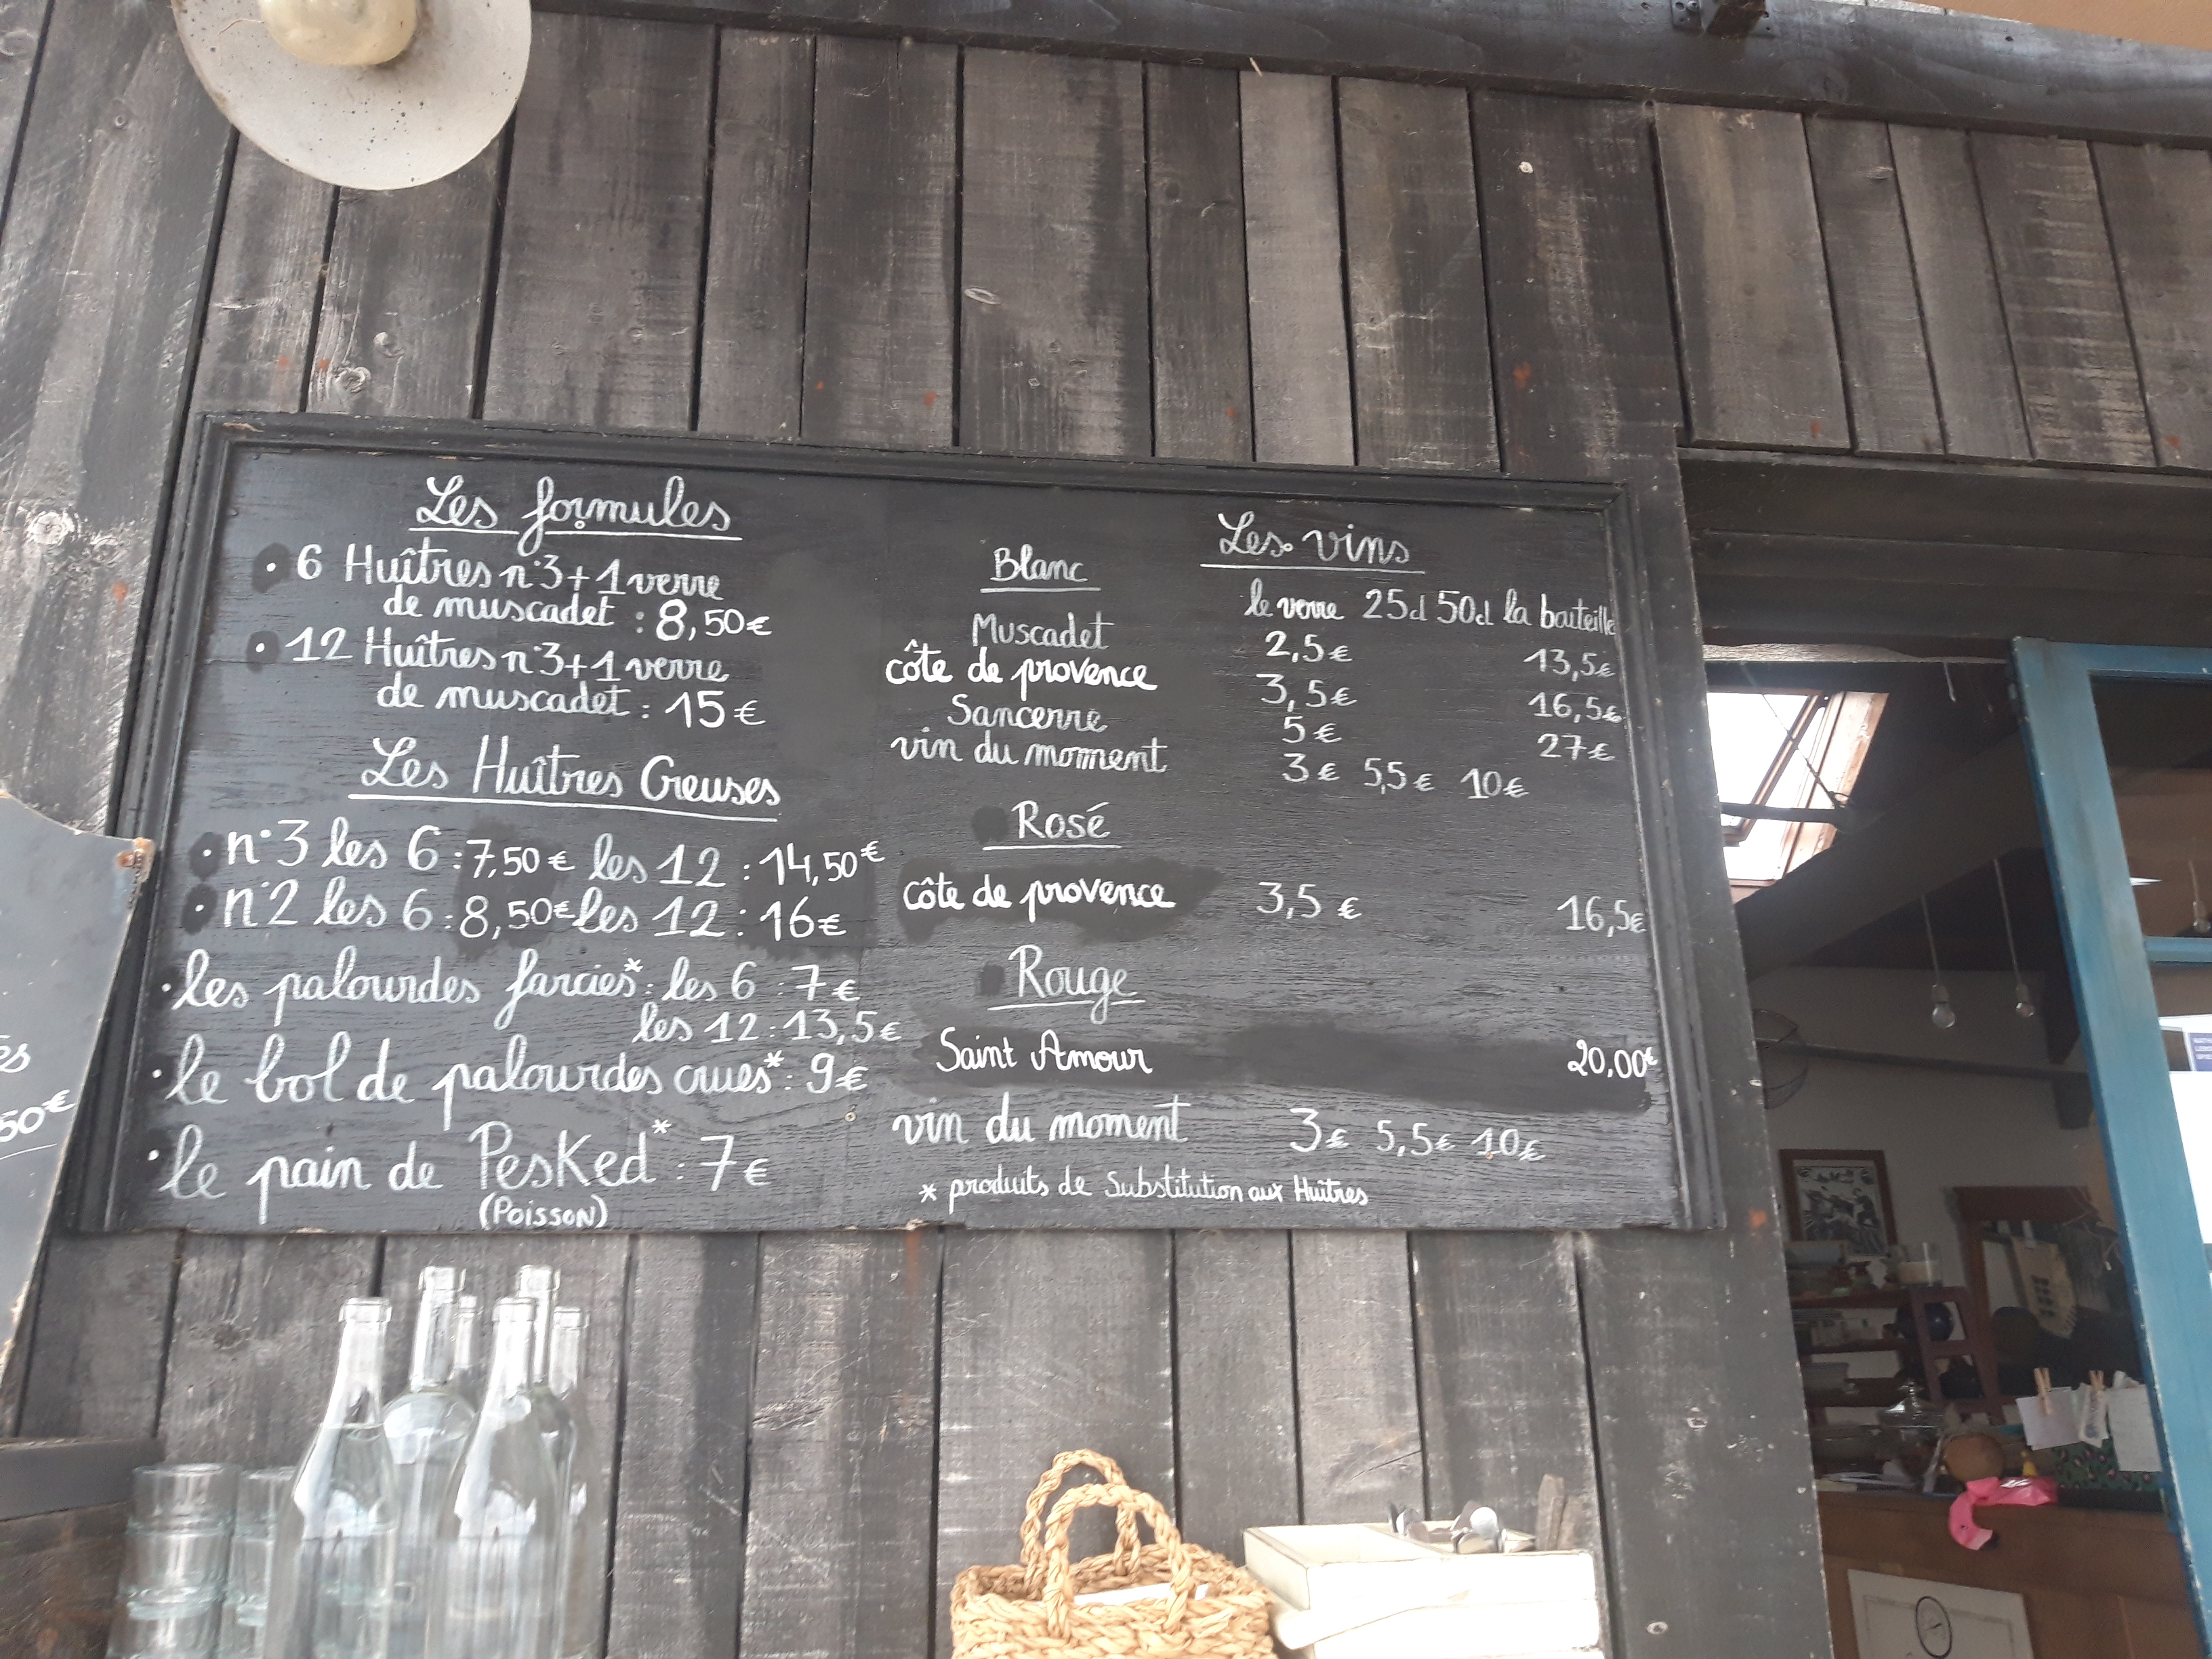 Les formules
• 6 Huîtres n°3+1 verre
de muscadet : 8,50€
• 12 Huîtres n°3+1 verre
de muscadet : 15€
Les Huîtres Creuses
• n°3 les 6 : 7,50€ les 12 : 14,50€
• n°2 les 6 : 8,50€ les 12 : 16€
• les palourdes farcies* : les 6 : 7€
les 12 : 13,5€
• le bol de palourdes crues* : 9€
• le pain de PesKed* : 7€
(POISSON)
Les vins
Blanc
le verre 25cl 50cl la bouteille
Muscadet 2,5€ 13,5€
côte de provence 3,5€ 16,5€
Sancerre 5€ 27€
vin du moment 3€ 5,5€ 10€
Rosé
côte de provence 3,5€ 16,5€
Rouge
Saint Amour 20,00€
vin du moment 3€ 5,5€ 10€
* produits de Substitution aux Huîtres
50€